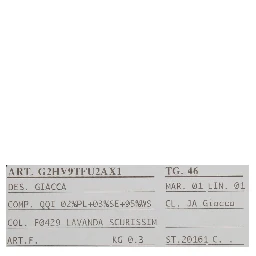 ART. G2HV9TFU2AX1 TG. 46
DES. GIACCA MAR. 01 LIN. 01
COMP. QQI 02%PL+03%SE+95%WS CL. JA Giacco
COL. F0429 LAVANDA SCURISSIM
ART.F. KG 0.3 ST.20161 C. .